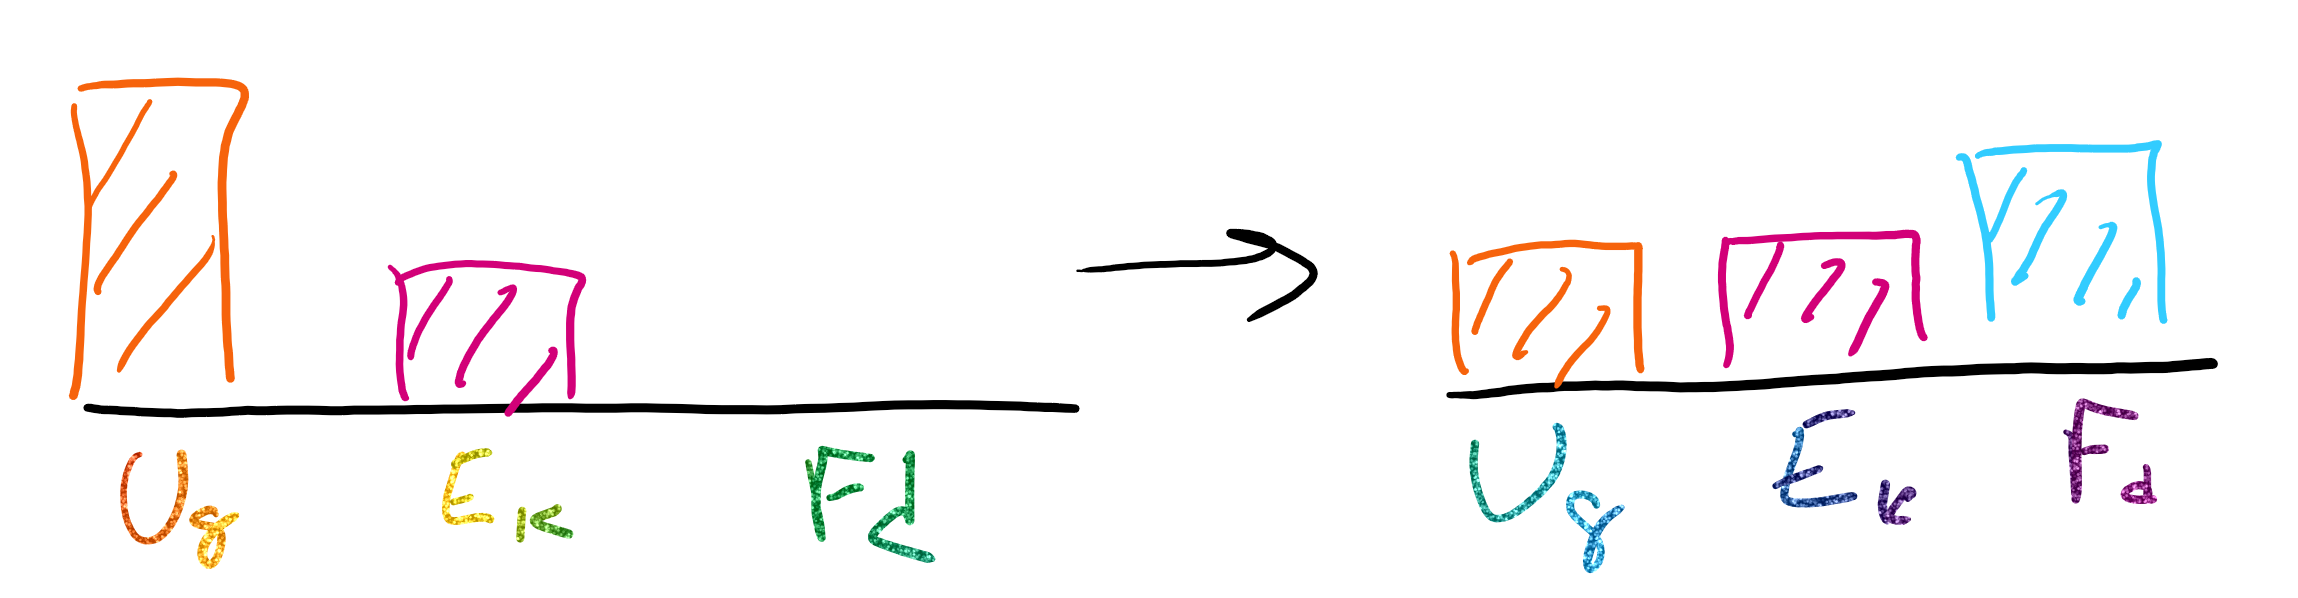 Ug Ek Fd Ug Ek Fd